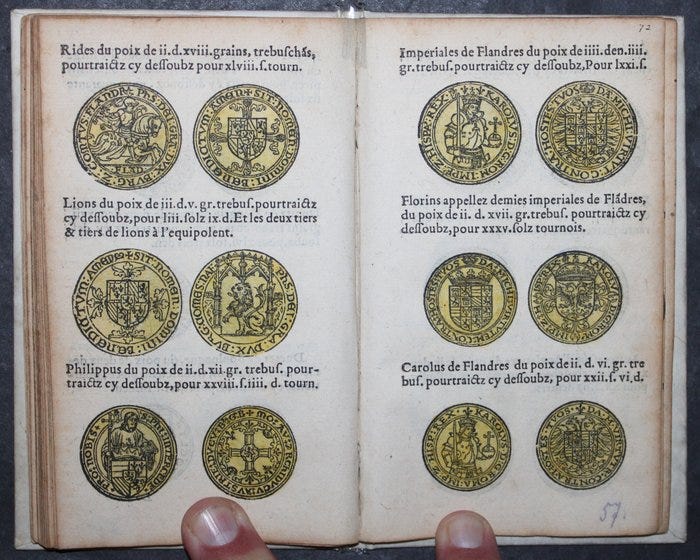 Rides du poix de ii.d.xviii.grains, trebuschãs,
pourtraictz cy dessoubz pour xlviii.s.tourn.
FLAD
SIT: NOMEN: DOMINI: BENEDICTVM: AMEN
Lions du poix de iii.d.v. gr.trebus. pourtraictz
cy dessoubz,pour liiii.solz ix.d.Et les deux tiers
& tiers de lions à l'equipolent.
SIT: NOMEN: DOMINI: BENEDICTVM: AMEN
Philippus du poix de ii.d.xii gr. trebus. pour-
traictz cy dessoubz,pour xxviii.s.iiii.d. tourn.
72
Imperiales de Flandres du poix de iiii.den.iiii.
gr.trebus.pourtraictz cy dessoubz,Pour lxxi.s.
KAROLVS
Florins appellez demies imperiales de Flãdres,
du poix de ii. d. xvii. gr.trebus. pourtraictz cy
dessoubz,pour xxxv.solz tournois.
Carolus de Flandres du poix de ii. d. vi. gr. tre
bus. pourtraictz cy dessoubz, pour xxii.s. vi.d.
57.